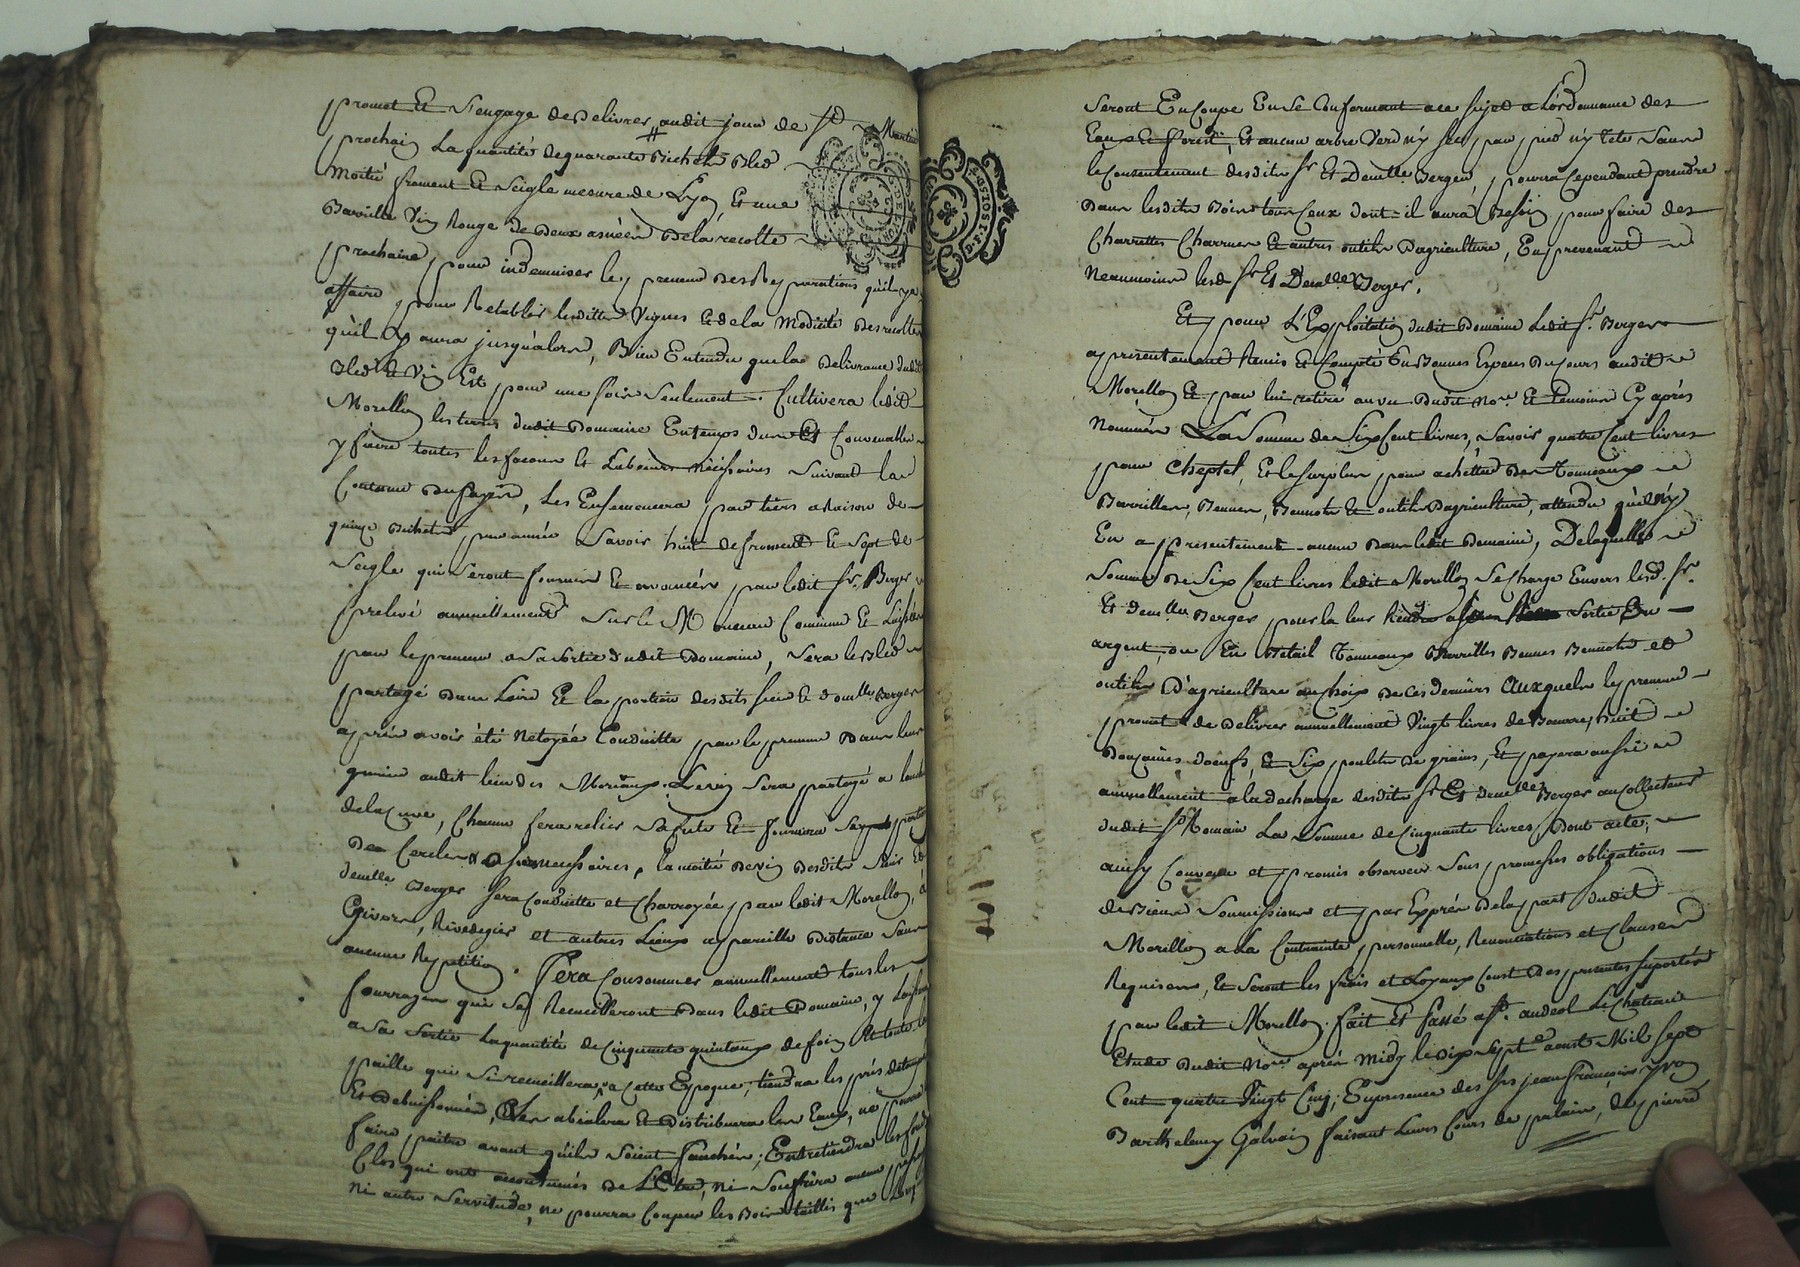 promet Et S'engage de Delivrer audit jour de St Martin
prochain La quantité de quarante Bichets Bled
Moitié froment Et Seigle mesure de Lyon Et une
Barrille Vin Rouge de Deux asnées De la recolte
prochaine, pour indemniser le preneur Des Reparations qu'il y a
affaire pour Retablir lesdittes Vignes Et de la Modicité Des recoltes
qu'il y aura jusqu'alors, Bien Entendu que la Delivrance dudit
Bled Et Vin Est pour une fois Seulement. Cultivera ledit
Morellon les terres dudit Domaine En temps dus Et Convenables
y faire toutes les façons Et Labours necessaires Suivant la
Coutume Du païs, Les Ensemencera par tiers a Raison de
quinze Bichets par année Savoir huit de froment Et Sept de
Seigle qui Seront fournis Et avancés par ledit Sr. Berger
prelevé annuellement Sur le M Commun Et Laissé
par le preneur a Sa Sortie dudit Domaine, Sera le Bled
partagé Dans Laire Et la portion desdits Sieur Et dlle Berger
après avoir été Netoyée Conduitte par le preneur Dans leur
grenier audit lieu des Moriaux. Le vin Sera partagé a lanche
de la Cuve, Chacun fera relier Sa futte Et fournira
De Cercles necessaires, la moitié De vin Desdits Sieur Et
demlle Berger Sera Conduitte et Charroyée par ledit Morellon, à
Givors, Rivedegier et autres Lieux a pareille Distance Sans
aucune Repetition. Fera Consommer annuellement tous les
fourrages qui Se Recueilleront Dans ledit Domaine, y Laissera
a Sa Sortie La quantité de Cinquante quintaux de foin Et toute la
paille qui Se recueillera a Cette Epoque, tiendra les prés
Et Debuissonnés, Les abialera Et Distribuera les Eaux, ne pourra
faire paitre avant qu'ils Soient fauchés; Entretiendra les fonds
Clos qui ont accoutumés de L'Etre, Ni Souffrira aucun
Ni autre Servitude, ne pourra Couper les Bois taillis que
Seront En Coupe En Se Conformant a ce Sujet a L'ordonnance des
Eaux Et Forest, Et aucun arbre Verd n'y Sec par pied n'y Tete Sans
le Consentement desdits Sr Et Demlle Berger, pourra Cependant prendre
Dans lesdits Bois tous Ceux dont il aura Besoin pour faire des
Charrettes Charrues Et autres outils D'agriculture, En prevenant
Neanmoins lesd Sr Et Demlle Berger.
Et pour L'Exploitation dudit Domaine Ledit Sr. Berger
a presentement Remis Et Compté En Bonnes Especes Du Cours audit
Morellon Et par lui retiré au vu Dudit Nore. Et temoins Cy après
Nommés La Somme de Six Cent livres, Savoir quatre Cent livres
pour Cheptel, Et le Surplus pour achetter Des Tonneaux
Barrilles, Bennes, Bennots Et outils D'agriculture, attendu qu'il n'y
En a presentement aucun Dans ledit Domaine, De laquelle
Somme de Six Cent livres ledit Morellon Se Charge Envers lesd. Sr.
Et demlle Berger, pour la leur Rendre a Sa Sortie En
argent, ou En Betail Tonneaux Barrilles Bennes Bennots et
outils D'agriculture au Choix De Ces Derniers Auxquels le preneur
promet de Delivrer annuellement Vingt livres de Beurre, Huit
Douzaines d'oeufs, Et Six poulets De grains, Et payera aussi
annuellement a la decharge desdits Sr Et demlle Berger au Collecteur
dudit St Romain La Somme de Cinquante livres, Dont acte;
ainsy Convenu et promis observer Sous promesses obligations
de Biens Soumissions et par Exprés De la part dudit
Morellon a La Contrainte personnelle, Renonciations et Clauses
Requises, Et Seront les frais et Loyaux Coust Des presentes Suportés
par ledit Morellon. fait Et Passé a St. andeol Le Chateau
Etude Dudit Nore après Midy le dix Sept aoust Mil Sept
Cent quatre Vingt Cinq; En presence des Srs jean françois yvon
Barthelemy Galvain faisant Leurs Cours de palais, de pierre